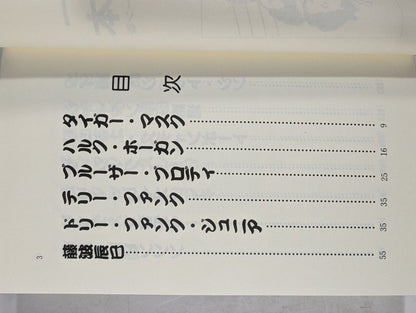 目次
タイガー・マスク……9
ハルク・ホーガン……16
ブルーザー・ブロディ……25
テリー・ファンク……35
ドリー・ファンク・ジュニア……35
藤波辰巳……55
3